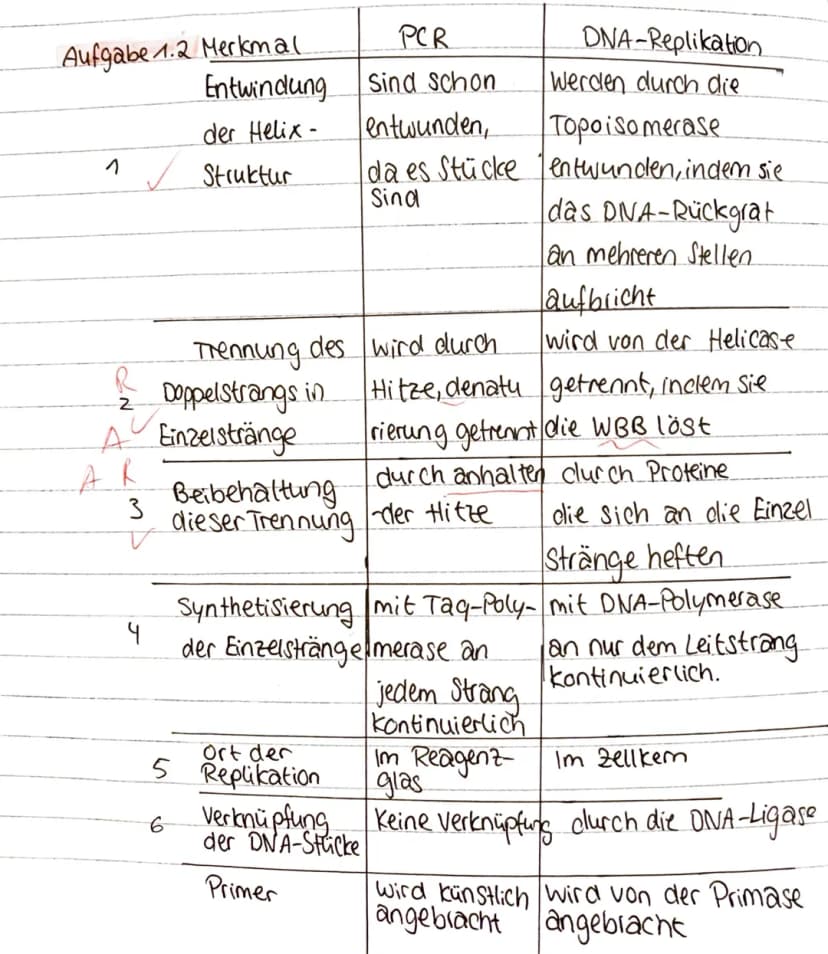 Aufgabe 1.2 Merkmal | PCR | DNA-Replikation
Entwindung | sind schon | werden durch die
der Helix- | entwunden, | Topoisomerase
1 ✓ Struktur | da es Stücke | entwunden, indem sie
sind | das DNA-Rückgrat
an mehreren Stellen
aufbricht
Trennung des | wird durch | wird von der Helicase
R 2 Doppelstrangs in | Hitze, denatu | getrennt, indem sie
A ✓ Einzelstränge | rierung getrennt | die WBB löst
A R Beibehaltung | durch anhalten | durch Proteine
3 ✓ dieser Trennung | der Hitze | die sich an die Einzel
stränge heften
4 Synthetisierung | mit Taq-Poly- | mit DNA-Polymerase
der Einzelstränge | merase an | an nur dem Leitstrang
jedem Strang | kontinuierlich.
kontinuierlich
5 Ort der | Im Reagenz- | Im Zellkern
Replikation | glas
6 Verknüpfung | Keine Verknüpfung | durch die DNA-Ligase
der DNA-Stücke
Primer | wird künstlich | wird von der Primase
angebracht | angebracht